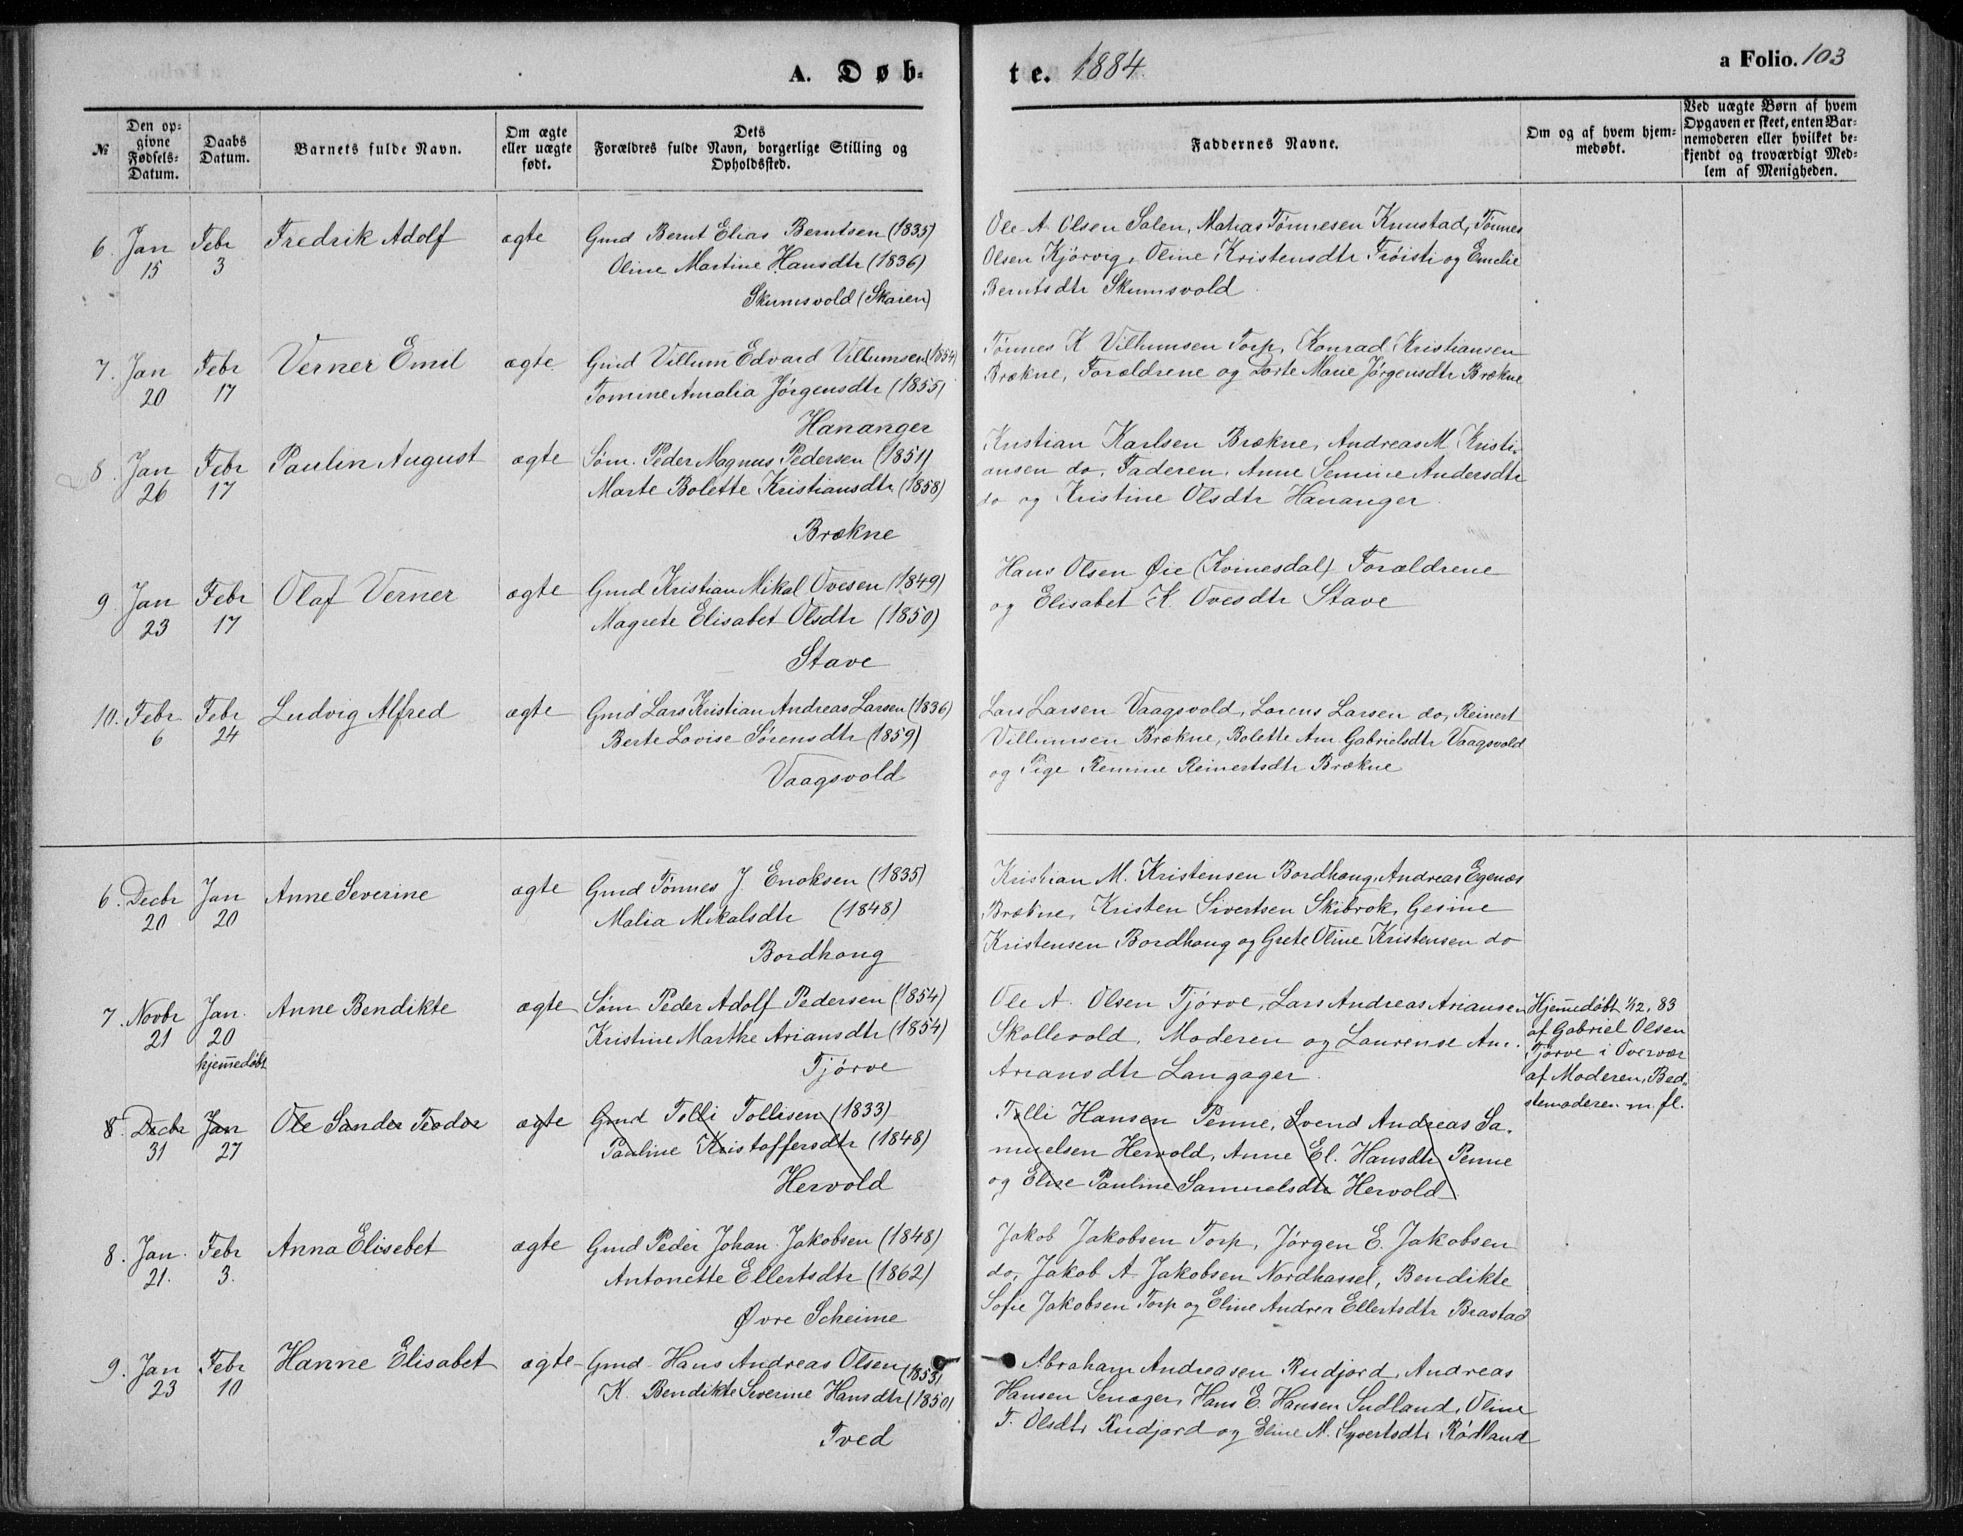 A. Døb-
te. 1884.
a Folio. 103
№
Den op-
givne
Fødsels-
Datum.
Daabs
Datum.
Barnets fulde Navn.
Om ægte
eller uægte
født.
Dets
Forældres fulde Navn, borgerlige Stilling og
Opholdssted.
Faddernes Navne.
Om og af hvem hjem-
medøbt.
Ved uægte Børn af hvem
Opgaven er skeet, enten Bar-
nemoderen eller hvilket be-
kjendt og troværdigt Med-
lem af Menigheden.
6. Jan 15 Febr 3 Fredrik Adolf ægte Gmd Bernt Elias Berntsen (1835)
Oline Martine Hansdtr (1836)
Skumsvold (Skaien)
Ole A. Olsen Salen, Mathias Tønnesen Knustad, Tønnes
Olsen Kjörvig, Oline Kristensdtr Tröisti og Emelie
Berntsdtr Skumsvold
7. Jan 20 Febr 17 Verner Emil ægte Gmd Villum Edvard Villumsen (1854)
Tomine Amalia Jörgensdtr (1855)
Hananger
Tønnes K Villumsen Torp, Konrad Kristiansen
Brækne, Forældrene og Dorte Marie Jörgensdtr Brækne
8. Jan 26 Febr 17 Paulin August ægte Søm. Peder Magnus Pedersen (1851)
Marte Bolette Kristiansdtr (1858)
Brækne
Kristian Karlsen Brækne, Andreas M. Kristi-
ansen do, Faderen, Anne Semine Andersdtr
do og Kristine Olsdtr Hananger
9. Jan 23 Febr 17 Olaf Verner ægte Gmd Kristian Mikal Ovesen (1849)
Magrete Elisabet Olsdtr (1850)
Stave
Hans Olsen Øie (Kvinesdal) Forældrene
og Elisabet K. Ovesdtr Stave
10. Febr 6 Febr 24 Ludvig Alfred ægte Gmd Lars Kristian Andreas Larsen (1836)
Berte Lovise Sörensdtr (1859)
Vaagsvold
Lars Larsen Vaagsvold, Lorens Larsen do, Reinert
Villumsen Brækne, Bolette Am. Gabrielsdtr Vaagsvold
og Pige Remine Reinertsdtr Brækne
6. Decbr 20 Jan 20 Anne Severine ægte Gmd Tønnes J. Enoksen (1835)
Malia Mikalsdtr (1848)
Bordhoug
Kristian M. Kristensen Bordhoug, Andreas Egenæs
Brækne, Kristen Sivertsen Skibrok, Gesine
Kristensen Bordhoug og Grete Oline Kristensen do
7. Novbr 21 Jan. 20 hjemmedøbt Anne Bendikte ægte Søm Peder Adolf Pedersen (1854)
Kristine Marthe Ariansdtr (1854)
Tjørve
Ole A. Olsen Tjørve, Lars Andreas Ariansen
Skollevold, Moderen og Laurense An.
Ariansdtr Langager.
Hjemmedøbt 1/12, 83
af Gabriel Olsen
Tjørve i Overvær
af Moderen, Bed-
stemoderen m. fl.
8. Decbr 31 Jan 27 Ole Sander Teodor ægte Gmd Tolli Tollisen (1833)
Pauline Kristoffersdtr (1848)
Hervold
Tolli Hansen Penne, Svend Andreas Sa-
muelsen Hervold, Anne El. Hansdtr Penne
og Elise Pauline Samuelsdtr Hervold
8. Jan. 21. Febr 3. Anna Elisebet ægte Gmd Peder Johan Jakobsen (1848)
Antonette Ellertsdtr (1862)
Øvre Scheime
Jakob Jakobsen Torp, Jørgen E. Jakobsen
do, Jakob A. Jakobsen Nordhassel, Bendikte
Sofie Jakobsen Torp og Eline Andrea Ellertsdtr Brastad
9. Jan 23 Febr 10 Hanne Elisabet ægte Gmd Hans Andreas Olsen (1853)
K. Bendikte Severine Hansdtr (1850)
Tved
Abraham Andreasen Rudjord, Andreas
Hansen Senager, Hans E. Hansen Sudland, Oline
T. Olsdtr Rudjord og Eline M. Syvertsdtr Rødland